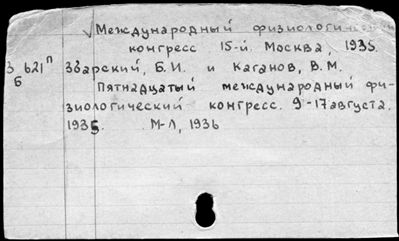 Международный физиологический
конгресс 15-й. Москва, 1935.
З 621 п
Б
Збарский, Б.И. и Каганов, В.М.
Пятнадцатый международный фи-
зиологический конгресс. 9-17 августа.
1935. М-Л, 1936